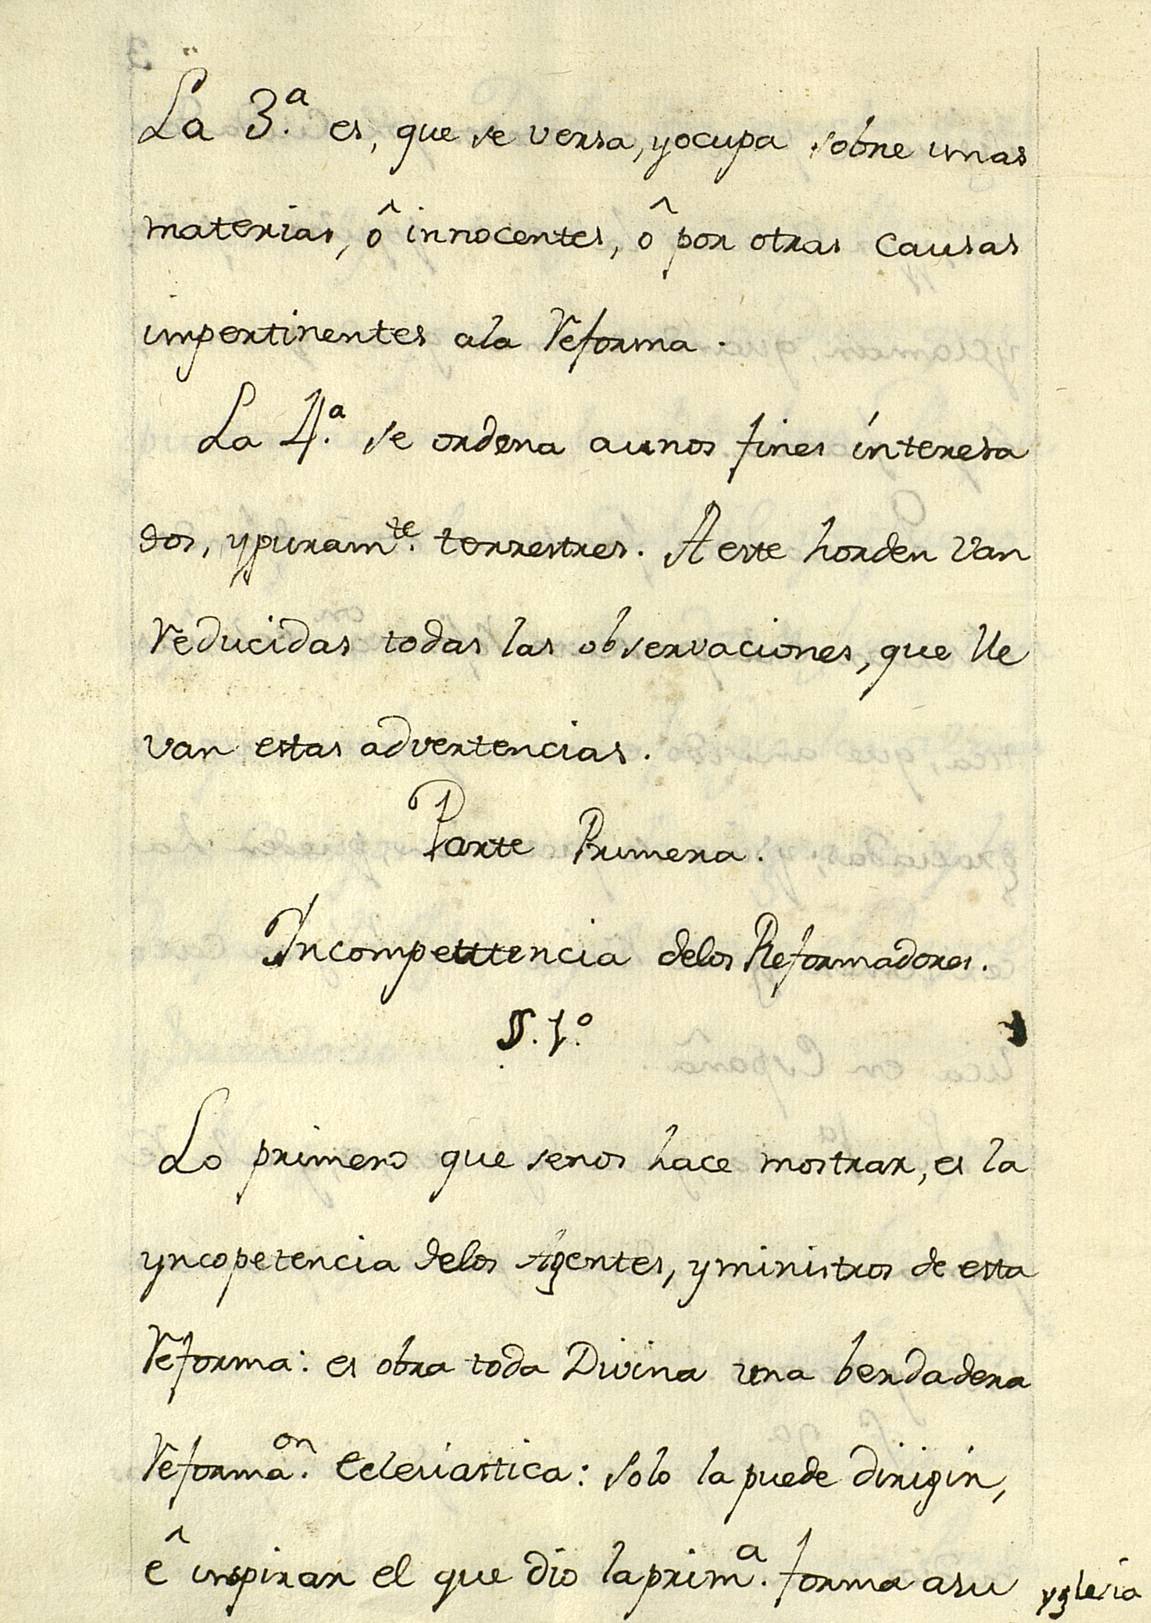 La 3.ª es, que se versa, y ocupa sobre unas
materias, ô innocentes, ô por otras causas
impertinentes ala Reforma.
La 4.ª se ordena a unos fines interesa
dos, y puramᵗᵉ. terrestres. A este horden van
reducidas todas las observaciones, que lle
van estas advertencias.
Parte Primera.
Incompetttencia delos Reformadores.
§. 1.º
Lo primero que senos hace mostrar, es la
yncopetencia delos Agentes, y ministros de esta
Reforma: es obra toda Divina una berdadera
Reformaᵒⁿ. Eclesiastica: solo la puede dirigir,
ê inspirar el que dio la prim.ª forma a su yglesia